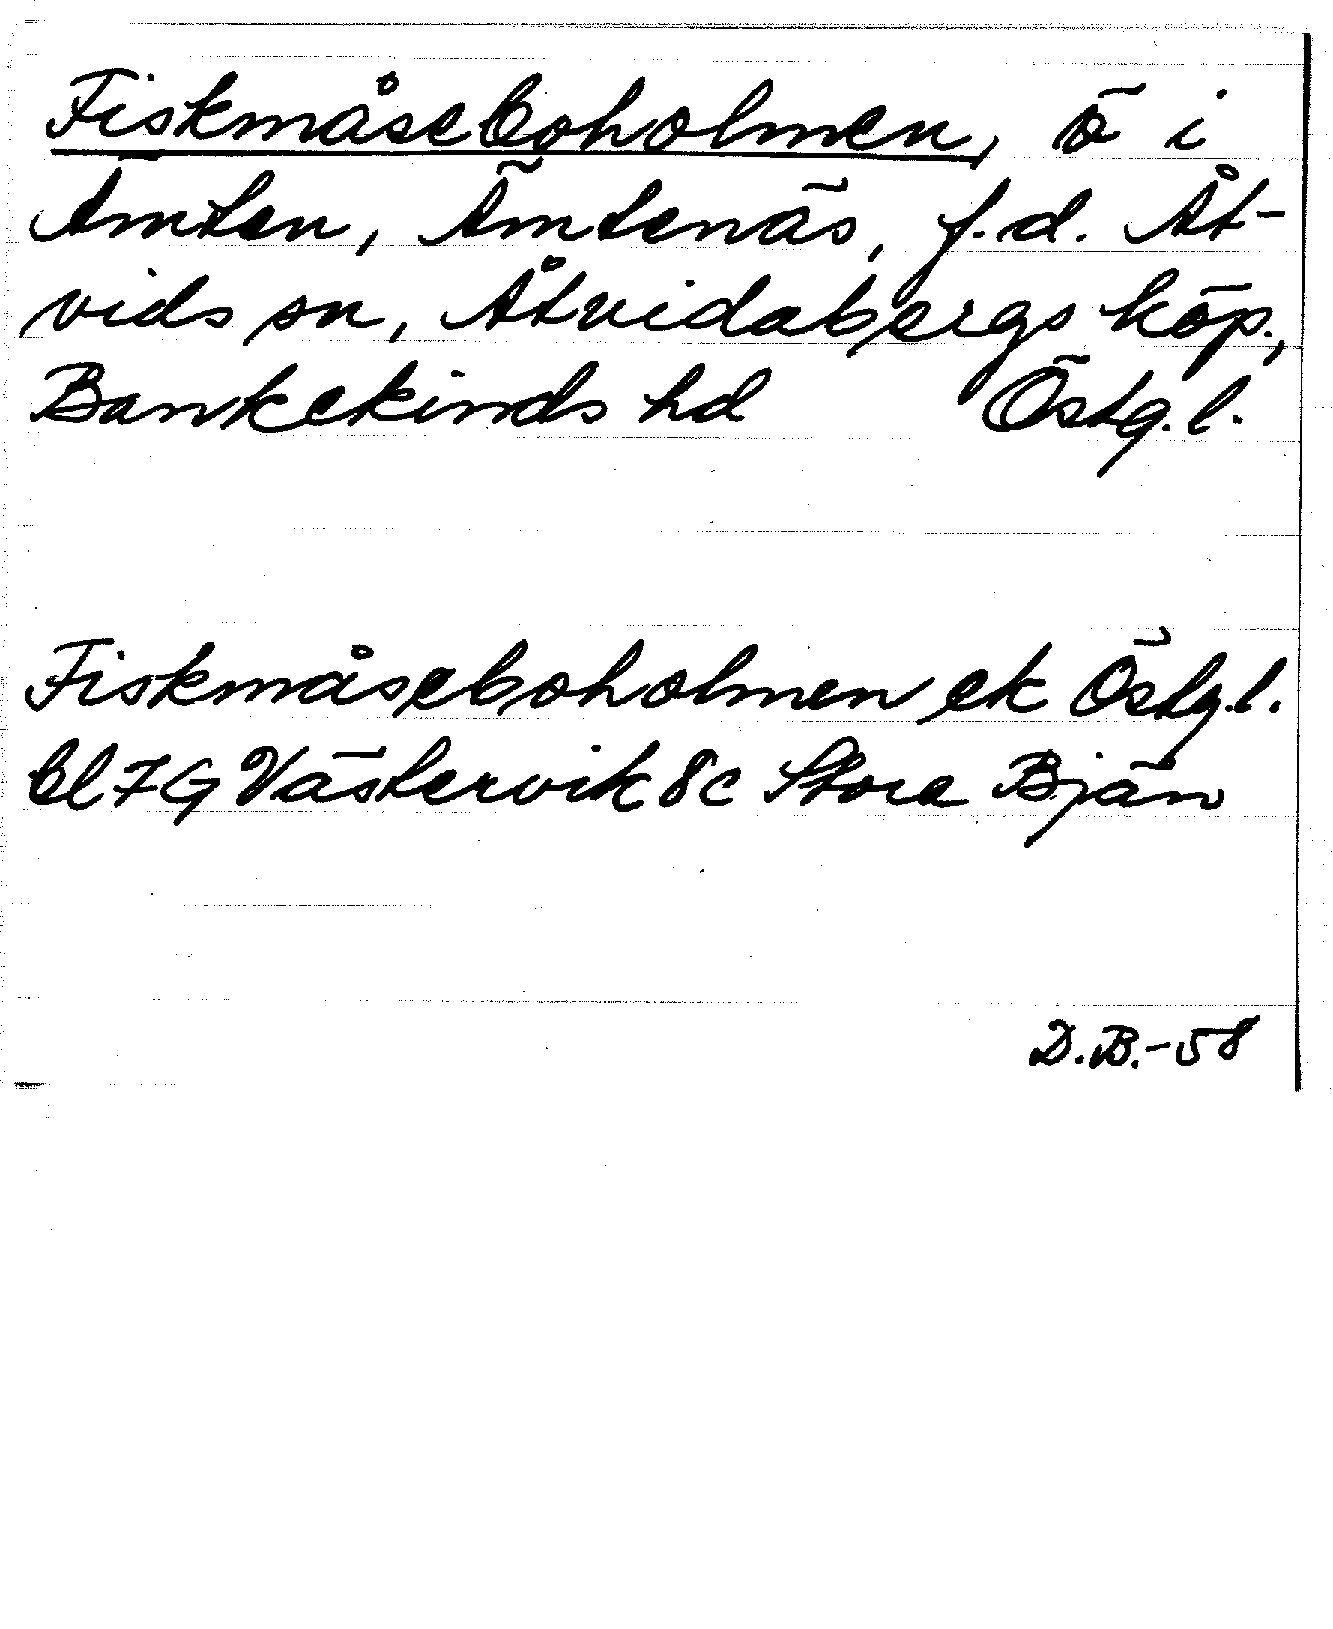 Fiskmåseboholmen, ö i
Ämten, Ämtenäs, f.d. Åt-
vids sn, Åtvidabergs köp.,
Bankekinds hd Östg.l.
Fiskmåseboholmen ek Östg.l.
bl 7G Västervik 8c Stora Bjän
D.B.-58